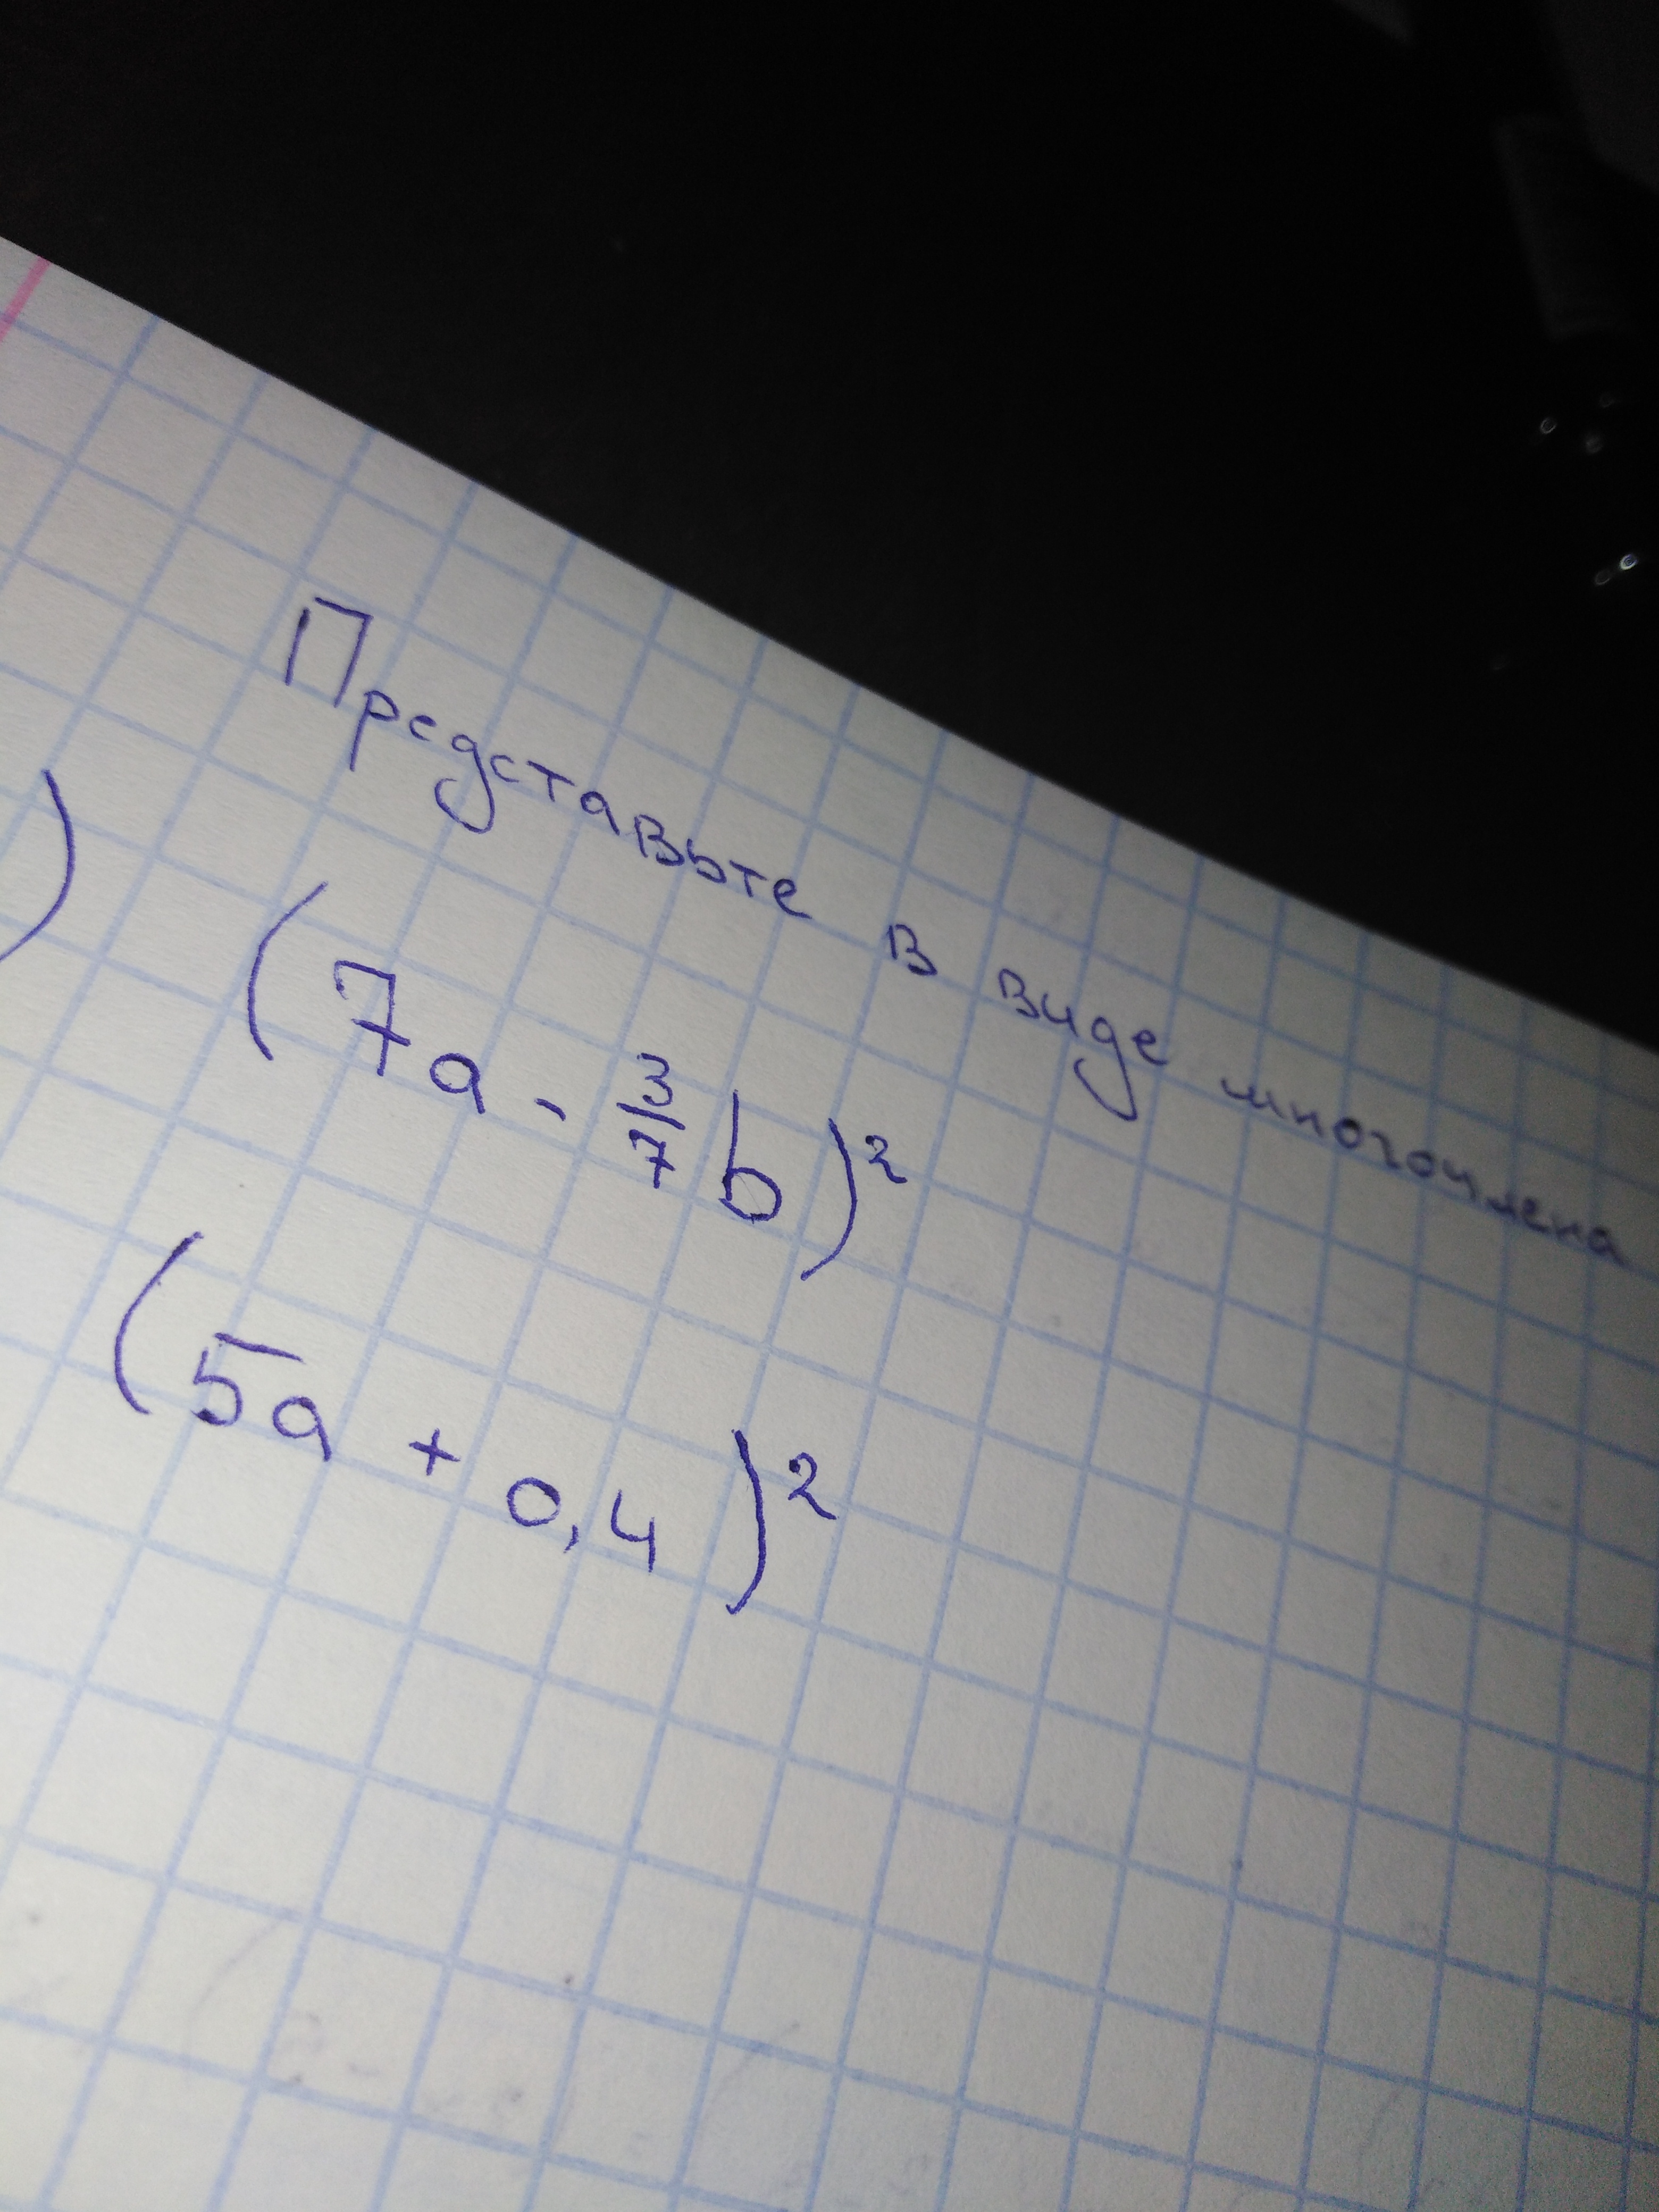 Представьте в виде многочлена
) (7a - 3/7 b)²
(5a + 0,4)²